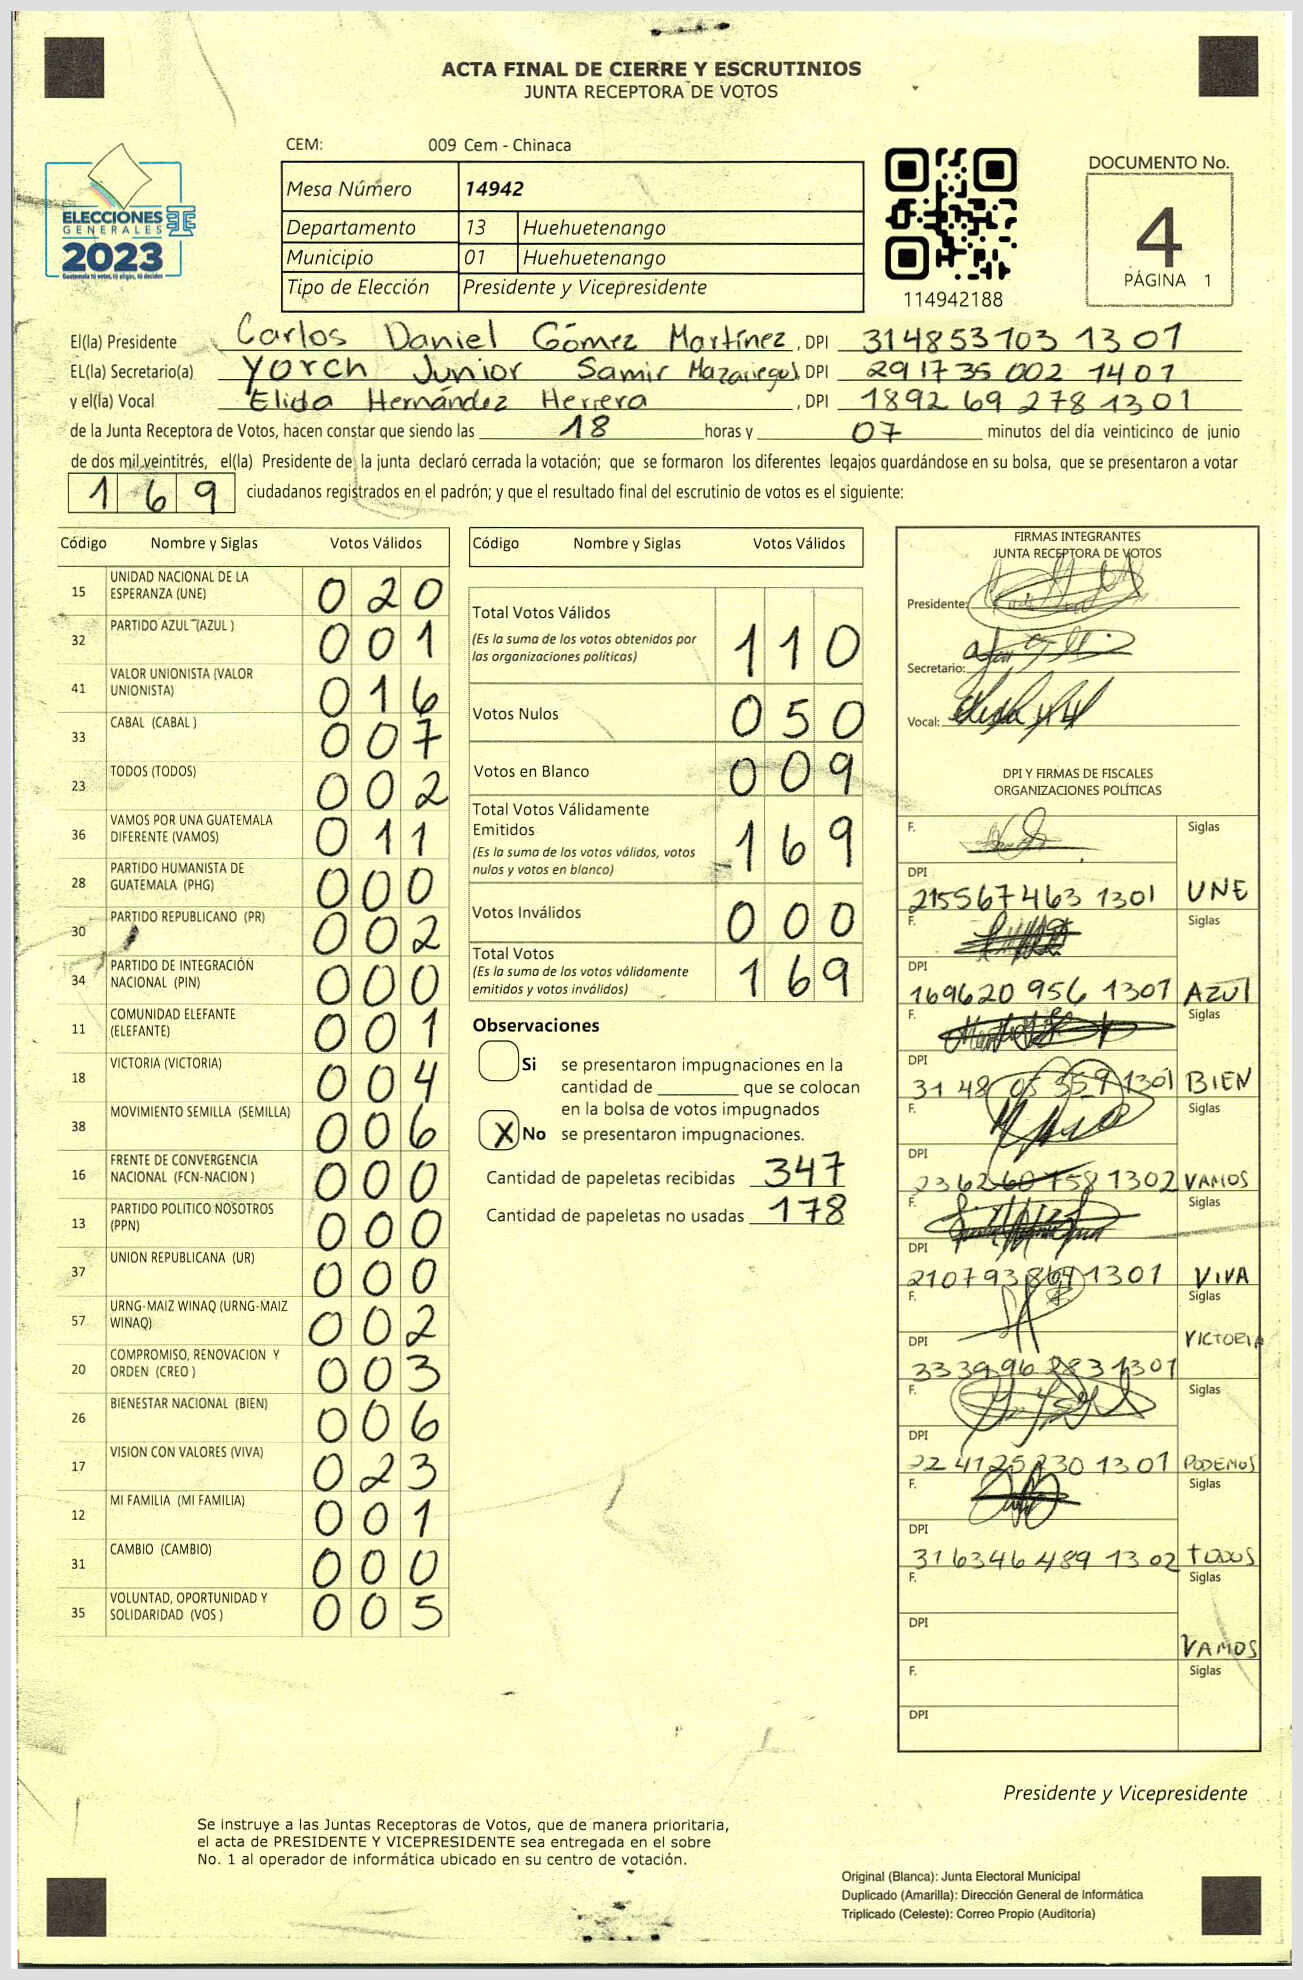 ACTA FINAL DE CIERRE Y ESCRUTINIOS
JUNTA RECEPTORA DE VOTOS
CEM: 009 Cem - Chinaca
ELECCIONES
GENERALES
2023
Guatemala tú votas, tú eliges, tú decides
Mesa Número 14942
Departamento 13 Huehuetenango
Municipio 01 Huehuetenango
Tipo de Elección Presidente y Vicepresidente
114942188
DOCUMENTO No.
4
PÁGINA 1
El(la) Presidente Carlos Daniel Gómez Martínez, DPI 314853103 1301
EL(la) Secretario(a) Yorch Junior Samir Mazariegos, DPI 291735002 1401
y el(la) Vocal Elida Hernández Herrera, DPI 1892 69 278 1301
de la Junta Receptora de Votos, hacen constar que siendo las 18 horas y 07 minutos del día veinticinco de junio
de dos mil veintitrés, el(la) Presidente de la junta declaró cerrada la votación; que se formaron los diferentes legajos guardándose en su bolsa, que se presentaron a votar
169 ciudadanos registrados en el padrón; y que el resultado final del escrutinio de votos es el siguiente:
Código Nombre y Siglas Votos Válidos
15 UNIDAD NACIONAL DE LA ESPERANZA (UNE) 020
32 PARTIDO AZUL (AZUL ) 001
41 VALOR UNIONISTA (VALOR UNIONISTA) 016
33 CABAL (CABAL ) 007
23 TODOS (TODOS) 002
36 VAMOS POR UNA GUATEMALA DIFERENTE (VAMOS) 011
28 PARTIDO HUMANISTA DE GUATEMALA (PHG) 000
30 PARTIDO REPUBLICANO (PR) 002
34 PARTIDO DE INTEGRACIÓN NACIONAL (PIN) 000
11 COMUNIDAD ELEFANTE (ELEFANTE) 001
18 VICTORIA (VICTORIA) 004
38 MOVIMIENTO SEMILLA (SEMILLA) 006
16 FRENTE DE CONVERGENCIA NACIONAL (FCN-NACION ) 000
13 PARTIDO POLITICO NOSOTROS (PPN) 000
37 UNION REPUBLICANA (UR) 000
57 URNG-MAIZ WINAQ (URNG-MAIZ WINAQ) 002
20 COMPROMISO, RENOVACION Y ORDEN (CREO ) 003
26 BIENESTAR NACIONAL (BIEN) 006
17 VISION CON VALORES (VIVA) 023
12 MI FAMILIA (MI FAMILIA) 001
31 CAMBIO (CAMBIO) 000
35 VOLUNTAD, OPORTUNIDAD Y SOLIDARIDAD (VOS ) 005
Código Nombre y Siglas Votos Válidos
Total Votos Válidos 110
(Es la suma de los votos obtenidos por
las organizaciones políticas)
Votos Nulos 050
Votos en Blanco 009
Total Votos Válidamente
Emitidos 169
(Es la suma de los votos válidos, votos
nulos y votos en blanco)
Votos Inválidos 000
Total Votos 169
(Es la suma de los votos válidamente
emitidos y votos inválidos)
Observaciones
Si se presentaron impugnaciones en la
cantidad de ________ que se colocan
en la bolsa de votos impugnados
X No se presentaron impugnaciones.
Cantidad de papeletas recibidas 347
Cantidad de papeletas no usadas 178
FIRMAS INTEGRANTES
JUNTA RECEPTORA DE VOTOS
Presidente:
Secretario:
Vocal:
DPI Y FIRMAS DE FISCALES
ORGANIZACIONES POLÍTICAS
F. Siglas
DPI 215567463 1301 UNE
F. Siglas
DPI 169620 956 1301 AZUL
F. Siglas
DPI 31 48 05 359 1301 BIEN
F. Siglas
DPI 2362 60 758 1302 VAMOS
F. Siglas
DPI 210793864 1301 VIVA
F. Siglas
DPI 333996 283 1301 VICTORIA
F. Siglas
DPI 22 4125230 1301 PODEMOS
F. Siglas
DPI 316346 489 1302 TODOS
F. Siglas
DPI VAMOS
F. Siglas
DPI
Presidente y Vicepresidente
Se instruye a las Juntas Receptoras de Votos, que de manera prioritaria,
el acta de PRESIDENTE Y VICEPRESIDENTE sea entregada en el sobre
No. 1 al operador de informática ubicado en su centro de votación.
Original (Blanca): Junta Electoral Municipal
Duplicado (Amarilla): Dirección General de Informática
Triplicado (Celeste): Correo Propio (Auditoria)